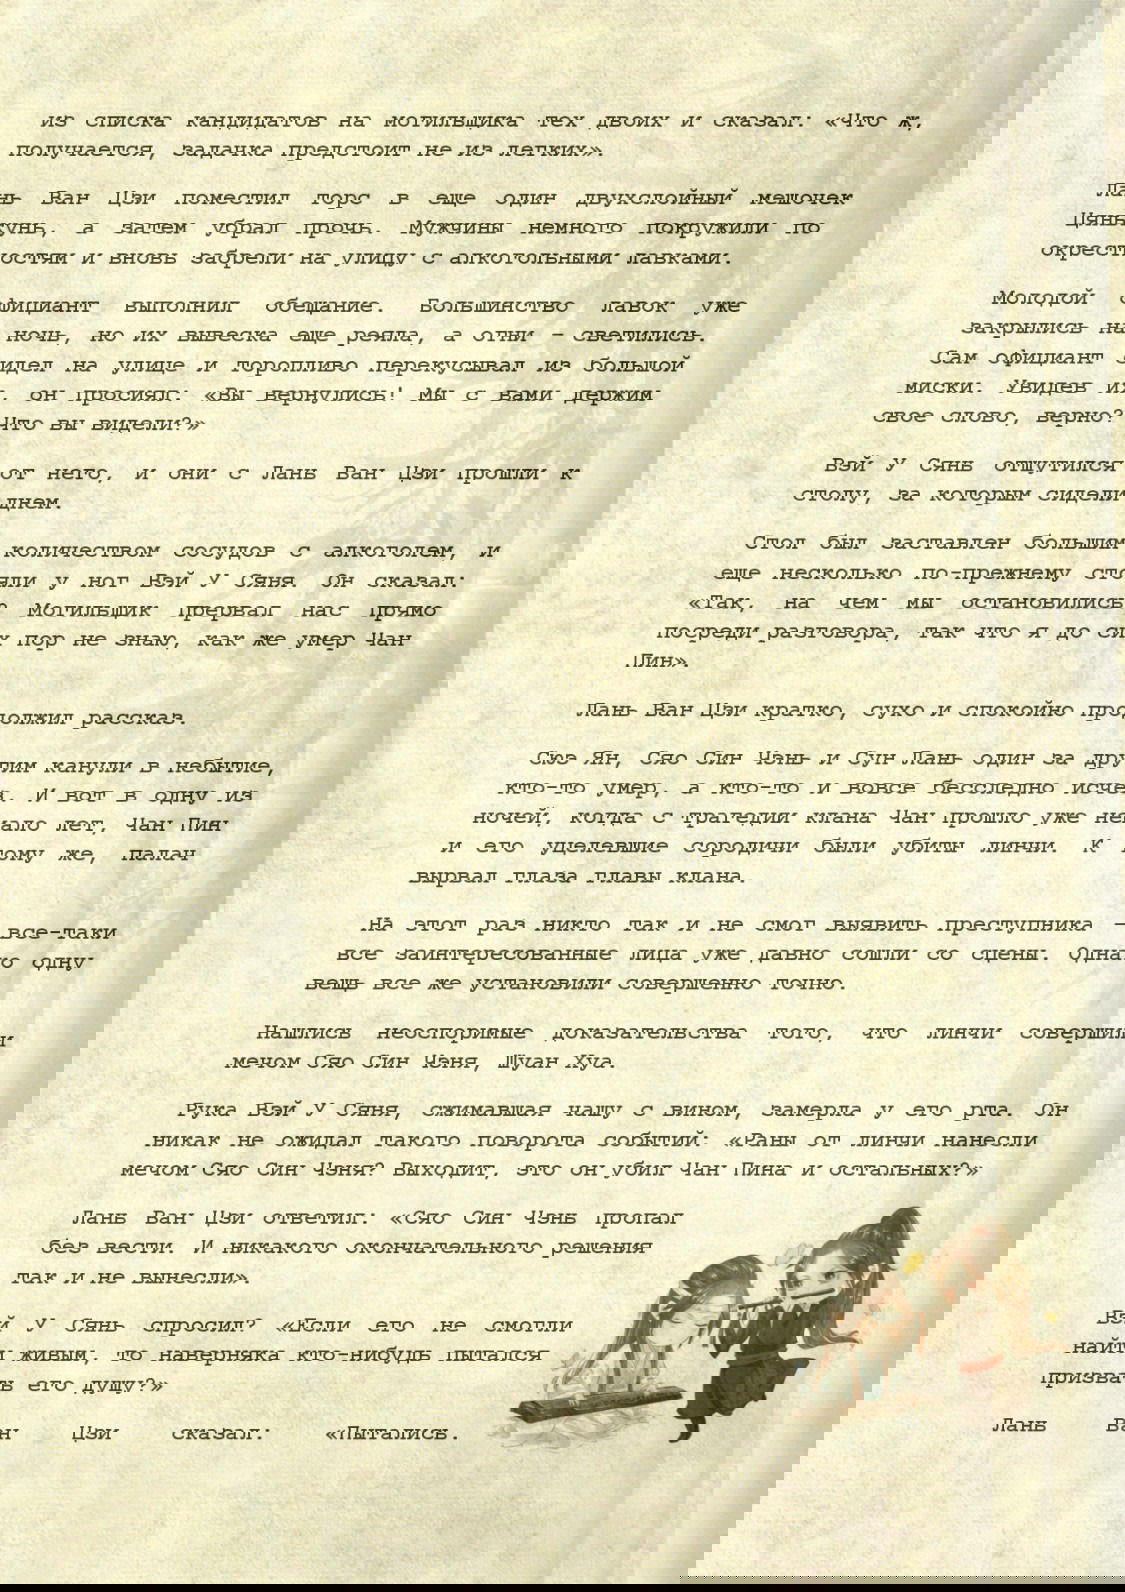 из списка кандидатов на могильщика тех двоих и сказал: «Что ж,
получается, задачка предстоит не из легких».
Лань Ван Цзи поместил торс в еще один двухслойный мешочек
Цянькунь, а затем убрал прочь. Мужчины немного покружили по
окрестностям и вновь забрели на улицу с алкогольными лавками.
Молодой официант выполнил обещание. Большинство лавок уже
закрылись на ночь, но их вывеска еще реяла, а огни – светились.
Сам официант сидел на улице и торопливо перекусывал из большой
миски. Увидев их, он просиял: «Вы вернулись! Мы с вами держим
свое слово, верно? Что вы видели?»
Вэй У Сянь отшутился от него, и они с Лань Ван Цзи прошли к
столу, за которым сидели днем.
Стол был заставлен большим количеством сосудов с алкоголем, и
еще несколько по-прежнему стояли у ног Вэй У Сяня. Он сказал:
«Так, на чем мы остановились? Могильщик прервал нас прямо
посреди разговора, так что я до сих пор не знаю, как же умер Чан
Пин».
Лань Ван Цзи кратко, сухо и спокойно продолжил рассказ.
Сюэ Ян, Сяо Син Чэнь и Сун Лань один за другим канули в небытие,
кто-то умер, а кто-то и вовсе бесследно исчез. И вот в одну из
ночей, когда с трагедии клана Чан прошло уже немало лет, Чан Пин
и его уцелевшие сородичи были убиты линчи. К тому же, палач
вырвал глаза главы клана.
На этот раз никто так и не смог выявить преступника – все-таки
все заинтересованные лица уже давно сошли со сцены. Однако одну
вещь все же установили совершенно точно.
Нашлись неоспоримые доказательства того, что линчи совершили
мечом Сяо Син Чэня, Шуан Хуа.
Рука Вэй У Сяня, сжимавшая чашу с вином, замерла у его рта. Он
никак не ожидал такого поворота событий: «Раны от линчи нанесли
мечом Сяо Син Чэня? Выходит, это он убил Чан Пина и остальных?»
Лань Ван Цзи ответил: «Сяо Син Чэнь пропал
без вести. И никакого окончательного решения
так и не вынесли».
Вэй У Сянь спросил? «Если его не смогли
найти живым, то наверняка кто-нибудь пытался
призвать его душу?»
Лань Ван Цзи сказал: «Пытались.